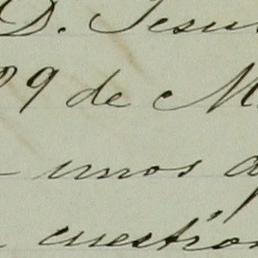 D. Jesu
29 de M
unos d
cuestion